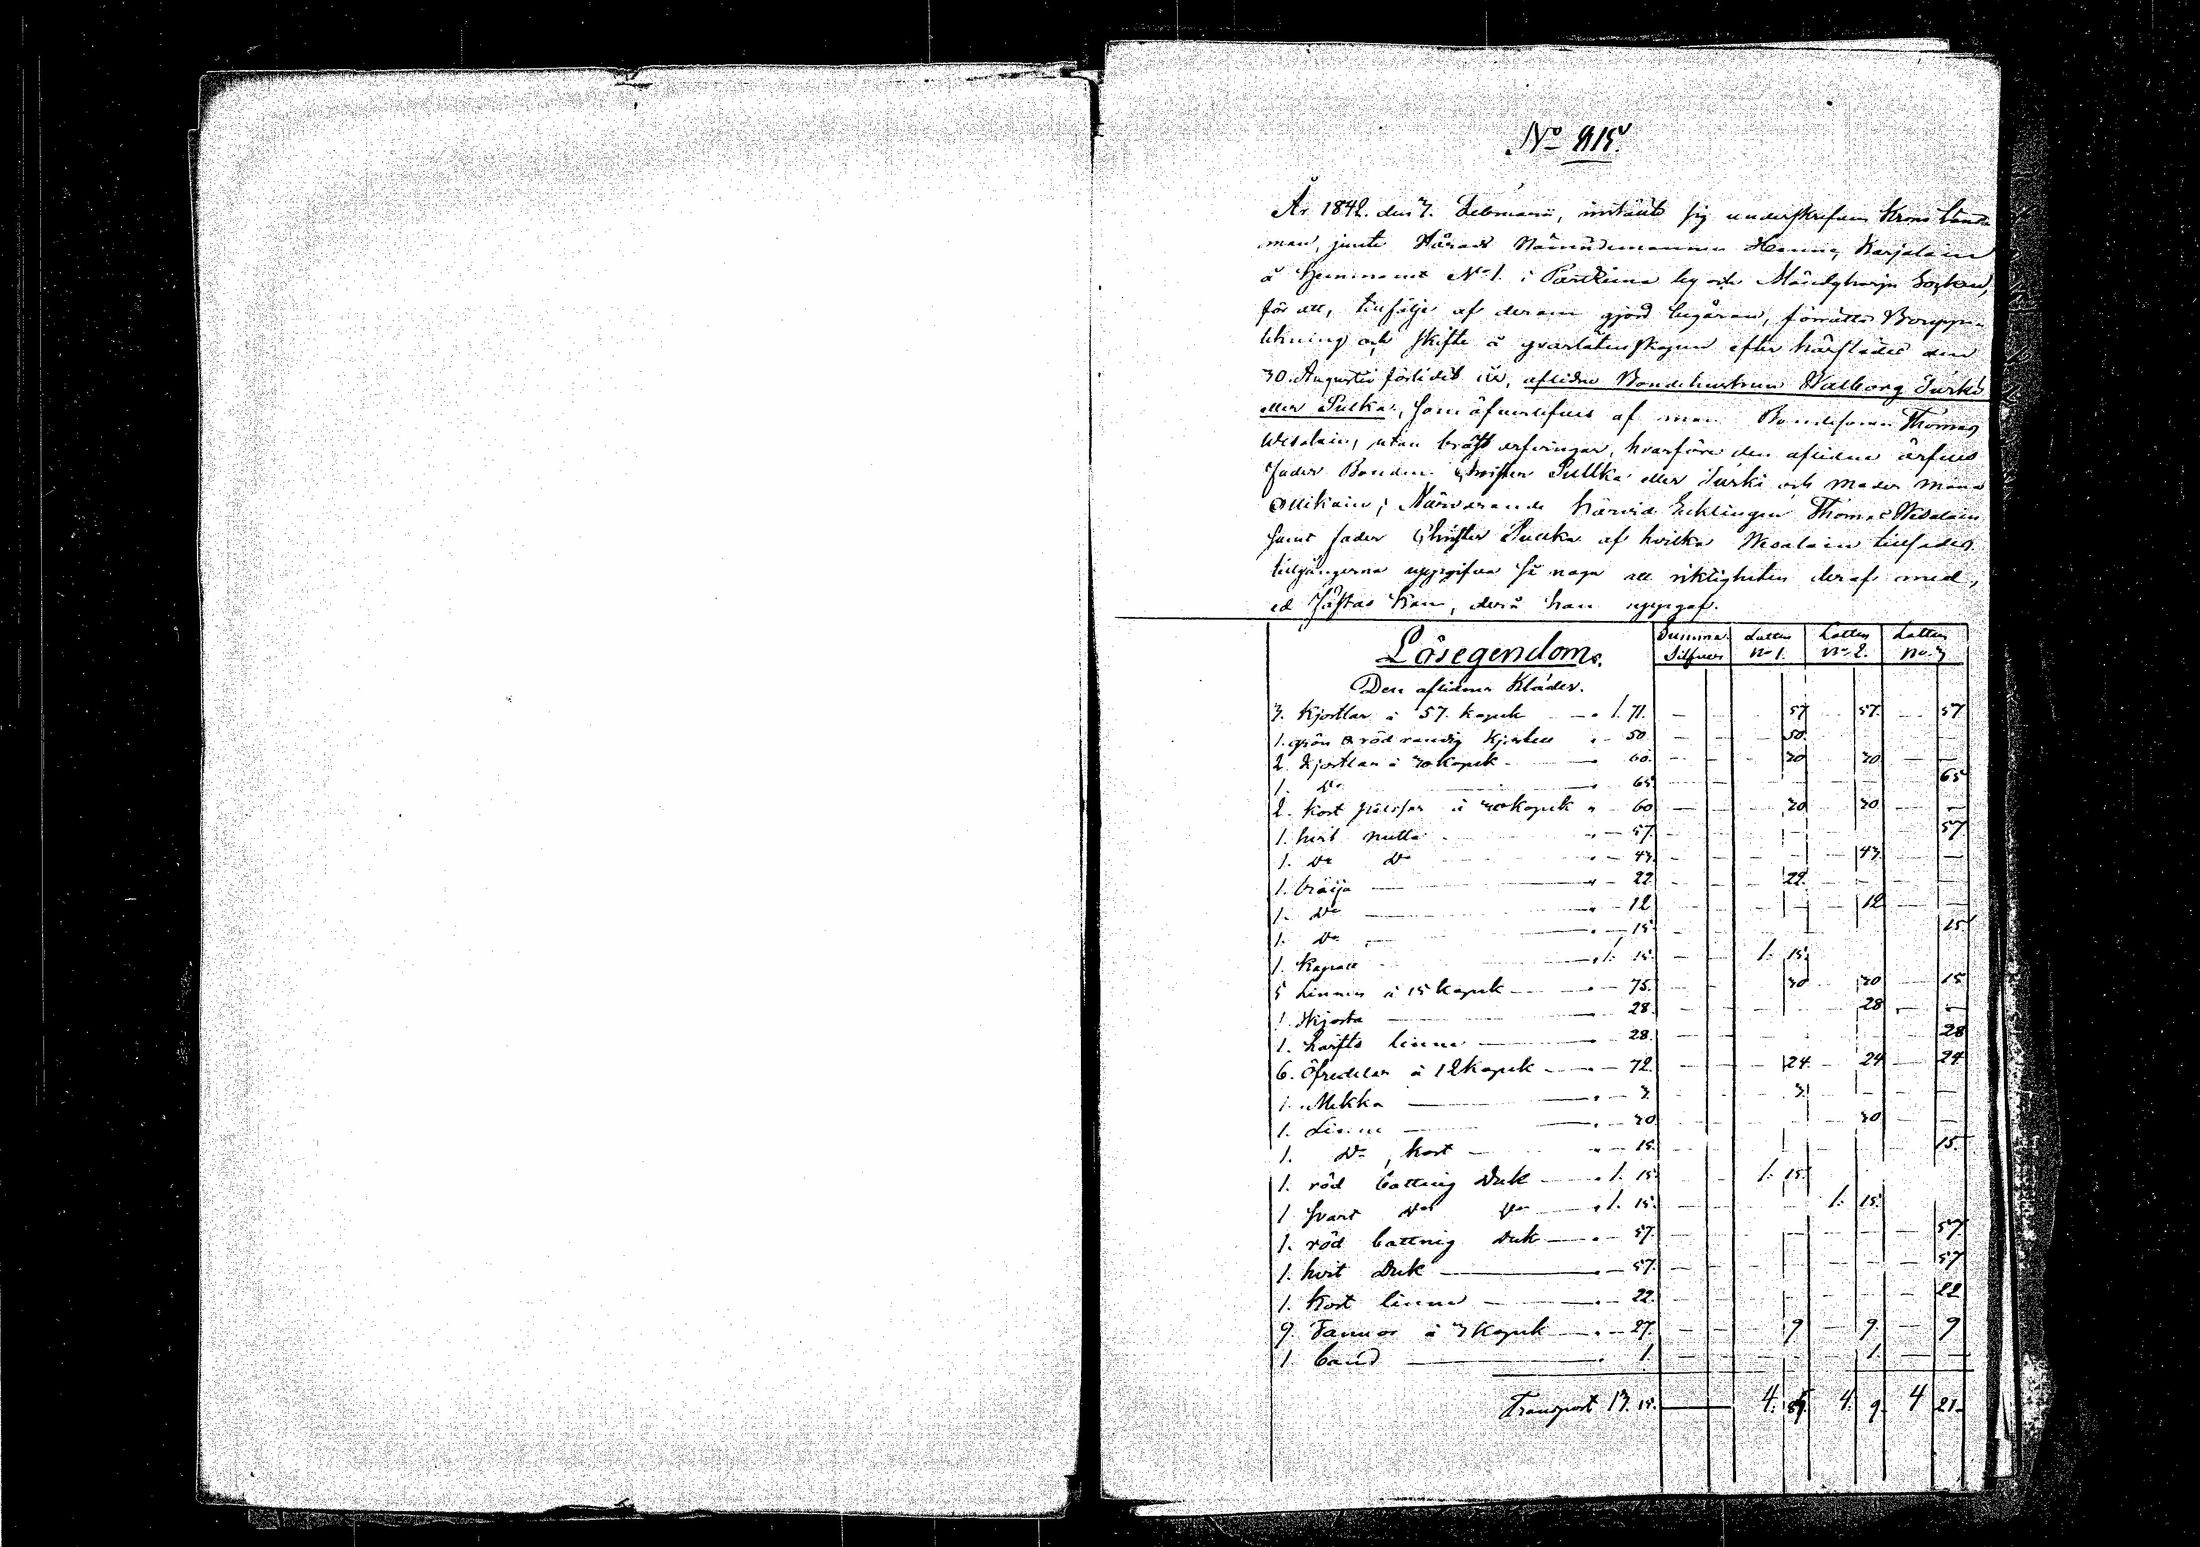 No 215.
År 1842. den 7. Februarii, instälte sig underskrifven Krono Läns-
man, jemte Härads Nämndemannen Henric Karjalain
å Hemmanet No 1. i Partsima by och Mäntyharju Sochen,
för att, tillfölje af derom gjord begäran, förrätta Boupp-
tekning och skifte å qvarlåtenskapen efter härstädes den
30. Augusti förlidit år, aflidne Bondehustrun Walborg Turki
eller Pulka, som öfverlefves af man Bondesonen Thomas
Wesalain, utan bröst arfvingar, hvarföre den aflidna ärfves
fader Bonden Christer Pullka eller Turki och moder Maria
Ollikain; Närvarande härvid Enklingen Thomas Wesalain
samt fader Christer Pulka af hvilka Wesalain tillsades
tillgångerna uppgifva så noga att riktigheten deraf med
ed fästas kan, derå han uppgaf.
Lösegendom. Summa Silfver Lotten No 1. Lotten No 2. Lotten No 3
Den aflidnes Kläder.
3. Kjortlar à 57. kopek - " 1. 71. - - 57 57. - 57
1. grön & röd randig Kjortell " - 50. - - 50.
2. Kjortlar à 30 Kopek - " 60. - - 30 30 - -
1. Do " 65 65
2. kort pälsar à 30 Kopek " - 60 - - 30 30 - -
1. hvit mutta " - 57. 57
1. Do Do " - 43. 43. -
1. tröija " - 22 22.
1. Do " - 12 12
1. Do " - 15 15
1. Kapott " 1. 15. 1. 15.
5 Linnen à 15 Kopek " - 75. 30 30 - 15
1. Skjorta - 28. 28
1. härfts linne - 28. 28
6. Öfredelar à 12 Kopek - " - 72. 24 24 - 24
1. Mekko " - 3. 3.
1. Linne " - 30. 30
1. Do, kort " - 15. 15.
1. röd Cattuns Duk " 1. 15. 1. 15.
1 svart Do Do " 1. 15. 1. 15.
1. röd Cattuns Duk " - 57. 57
1. hvit Duk " - 57. 57
1. Kort linne " - 22. 22
9. à 3 Kopek " - 27. - - 9 9. - 9
1. band " 1. 1. - -
Transport 13. 15. 4. 85 4. 9. 4 21.